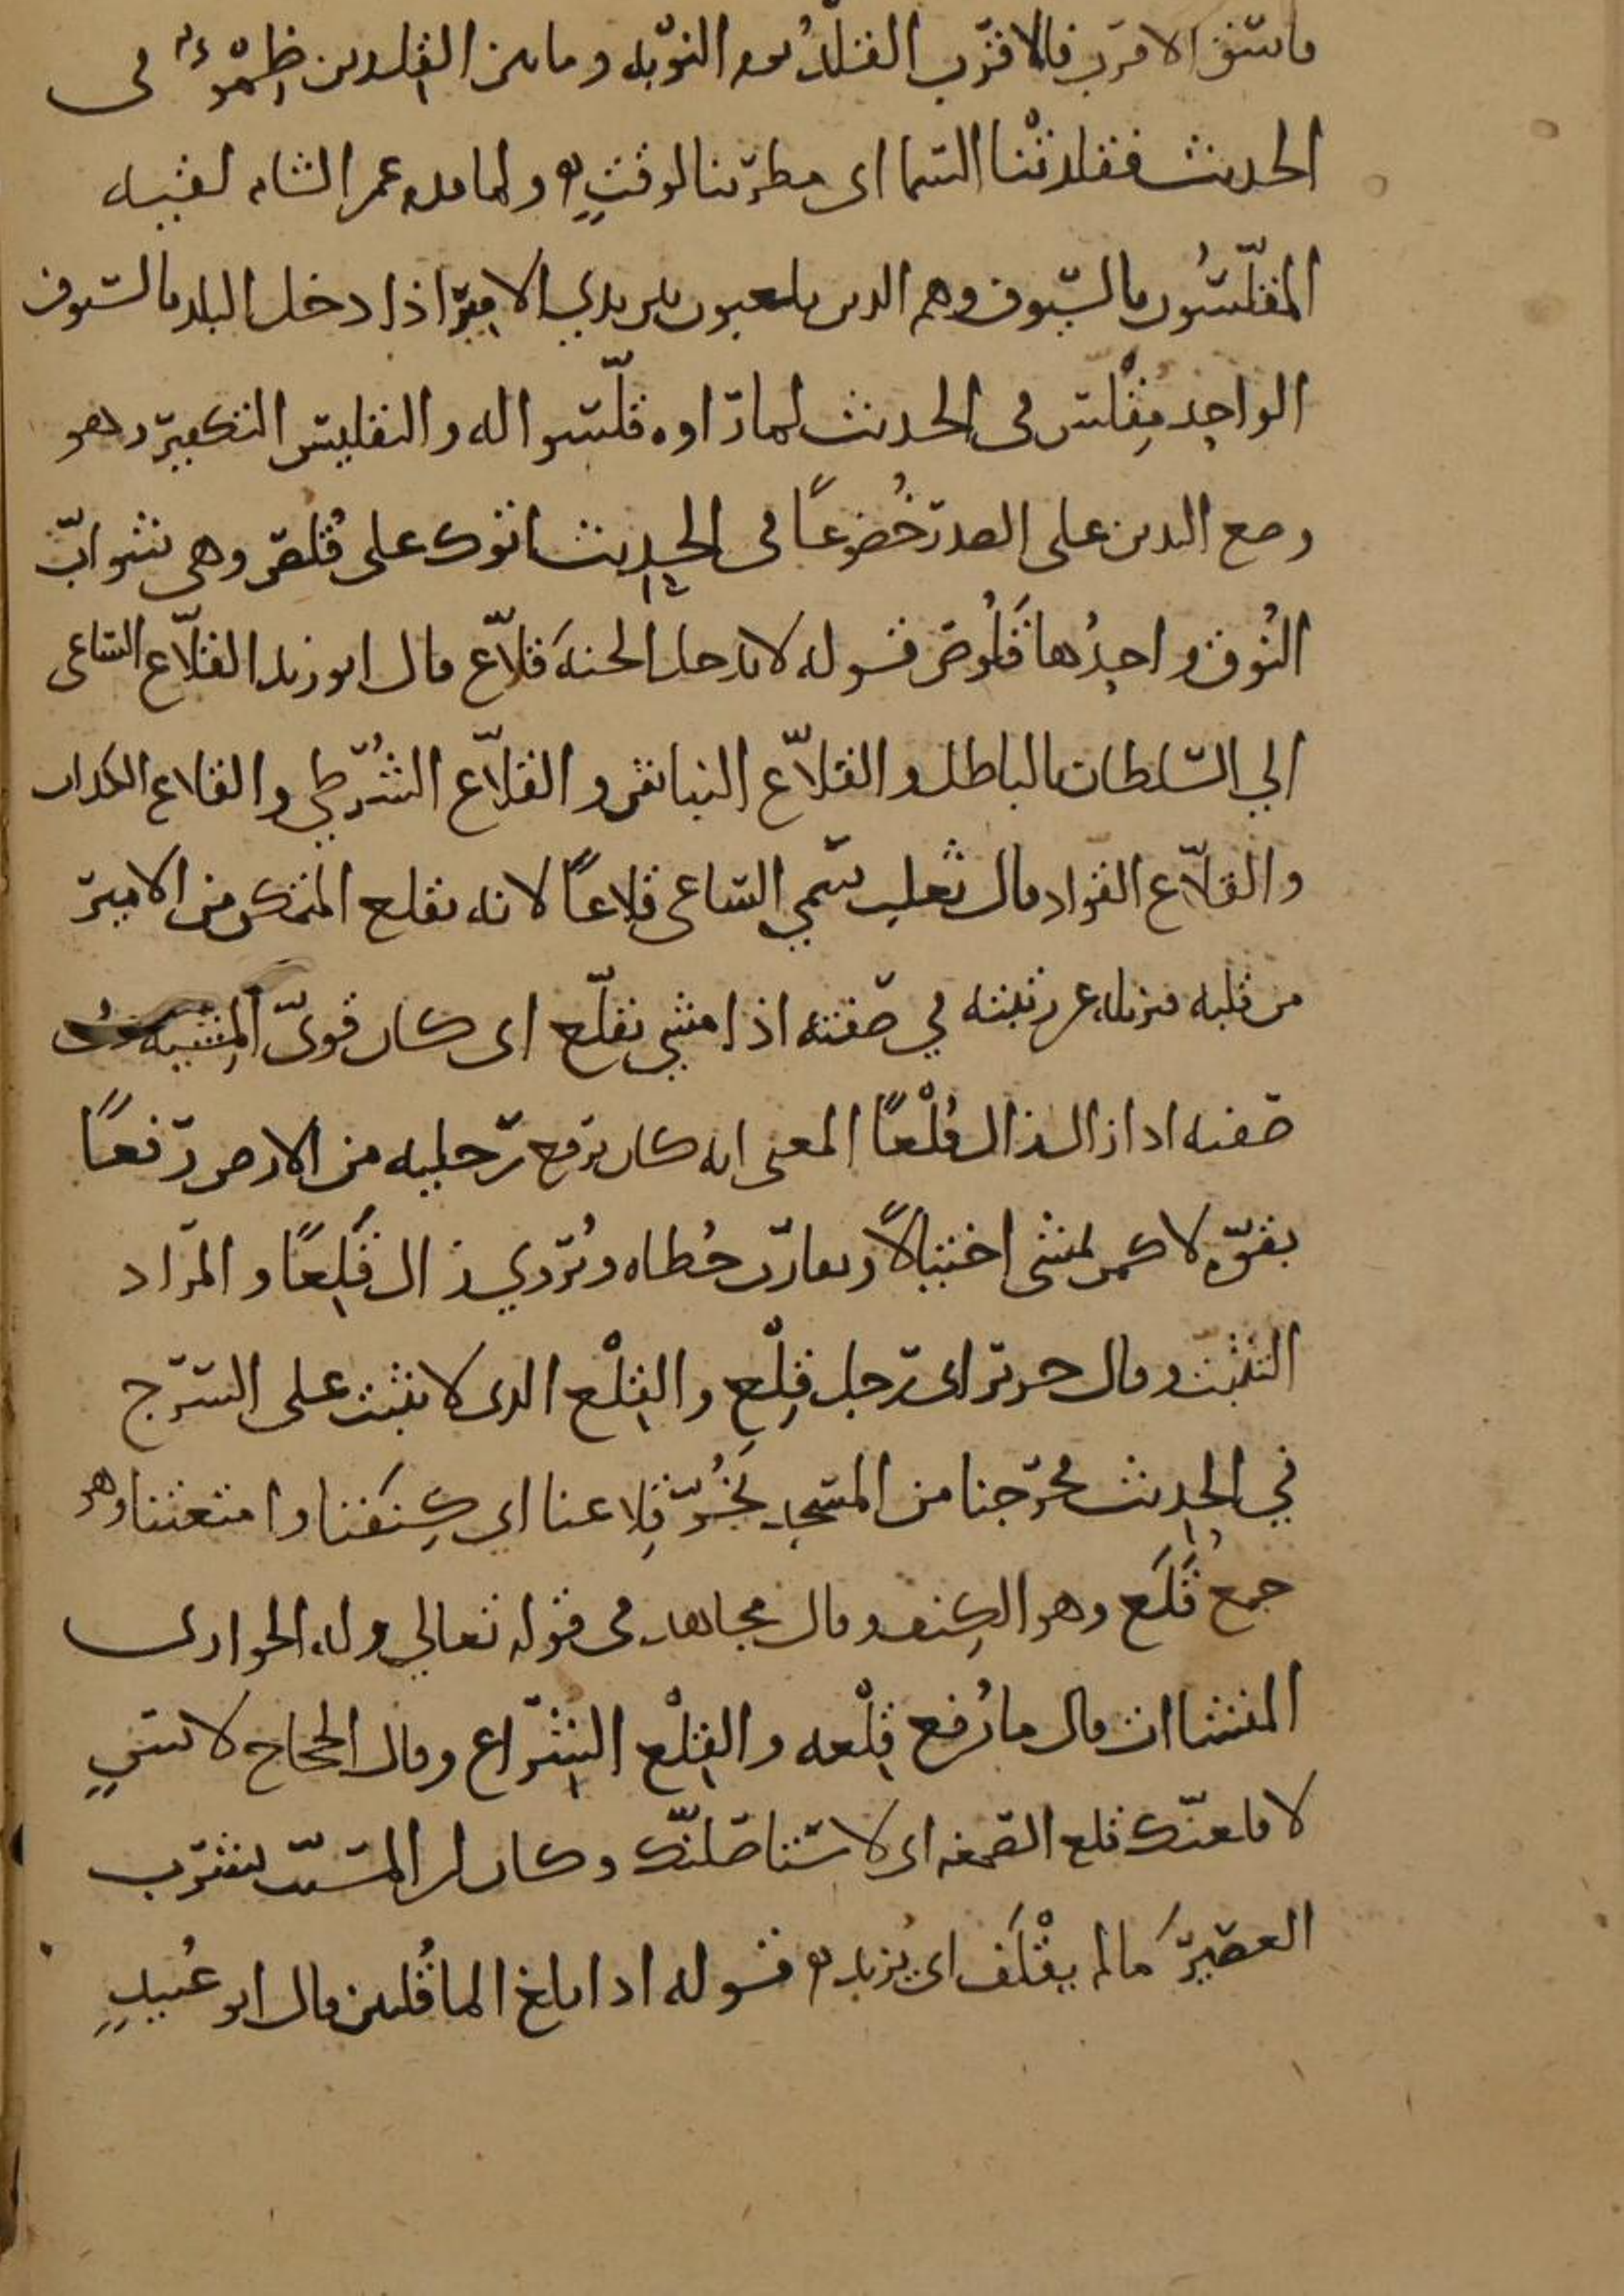 فاسق الاقرب فالاقرب القلد يوم النوبة وما بين القلدين ظمؤ في
الحديث فقلدتنا السما اى مطرتنا لوقتٍ ولما قدم عمر الشام لقيه
المقلّسُون بالسّيوف وهم الدين يلعبون بين يدي الامير اذا دخل البلد بالسيوف
الواحِد مِقْلس في الحديث لما راوه قلّسوا له والتقليس التكفير وهو
وضع اليدين على الصدر خُضوعًا في الحديث اتوك على قُلصٍ وهى شوابّ
النُوق واحِدُها قَلُوص قوله لا يدخل الجنهَ قلاّع قال ابو زيد القلاّع الساعى
الي السّلطان بالباطل والقلاّع النباش والقلاّع الشُّرَطي والقلاع الكداب
والقلاّع القواد قال ثعلب سّمي الساعى قلاعًا لانه يقلع المتمكن من الامير
من قلبه فيزيله عن رتبته في صفته اذا مشي تقلّع اى كان قويّ المِشيه في
صفته ادا زال زال قُلْعًا المعنى انه كان يرفع رجليه من الارض رفعًا
بقوّه لا كمن يمشى اختيالاً ويقارب خُطاه وتُروي زال قَلِعًا والمراد
التثبت وقال جرير اى رجل قِلْع والقِلْع الدى لا يثبت على السرج
في الحديث فخرجنا من المسجد نَجُرّ قِلاعنا اى كِنَفنا وامتعتنا وهو
جمعُ قَلَع وهو الكِنف وقال مجاهد في قوله تعالي وله الجوار
المنشاات قال ما رُفع قِلْعه والقِلْع الشِراع وقال الحجاج لانسٍ
لاقلعنّك قلع الصمغه اى لاستاصلنّك وكان ابن المسيّب يشرب
العصيرَ مالم يقْلَف اى يُزبد قوله ادا بلغ الما قُلتين قال ابو عُبيدٍ